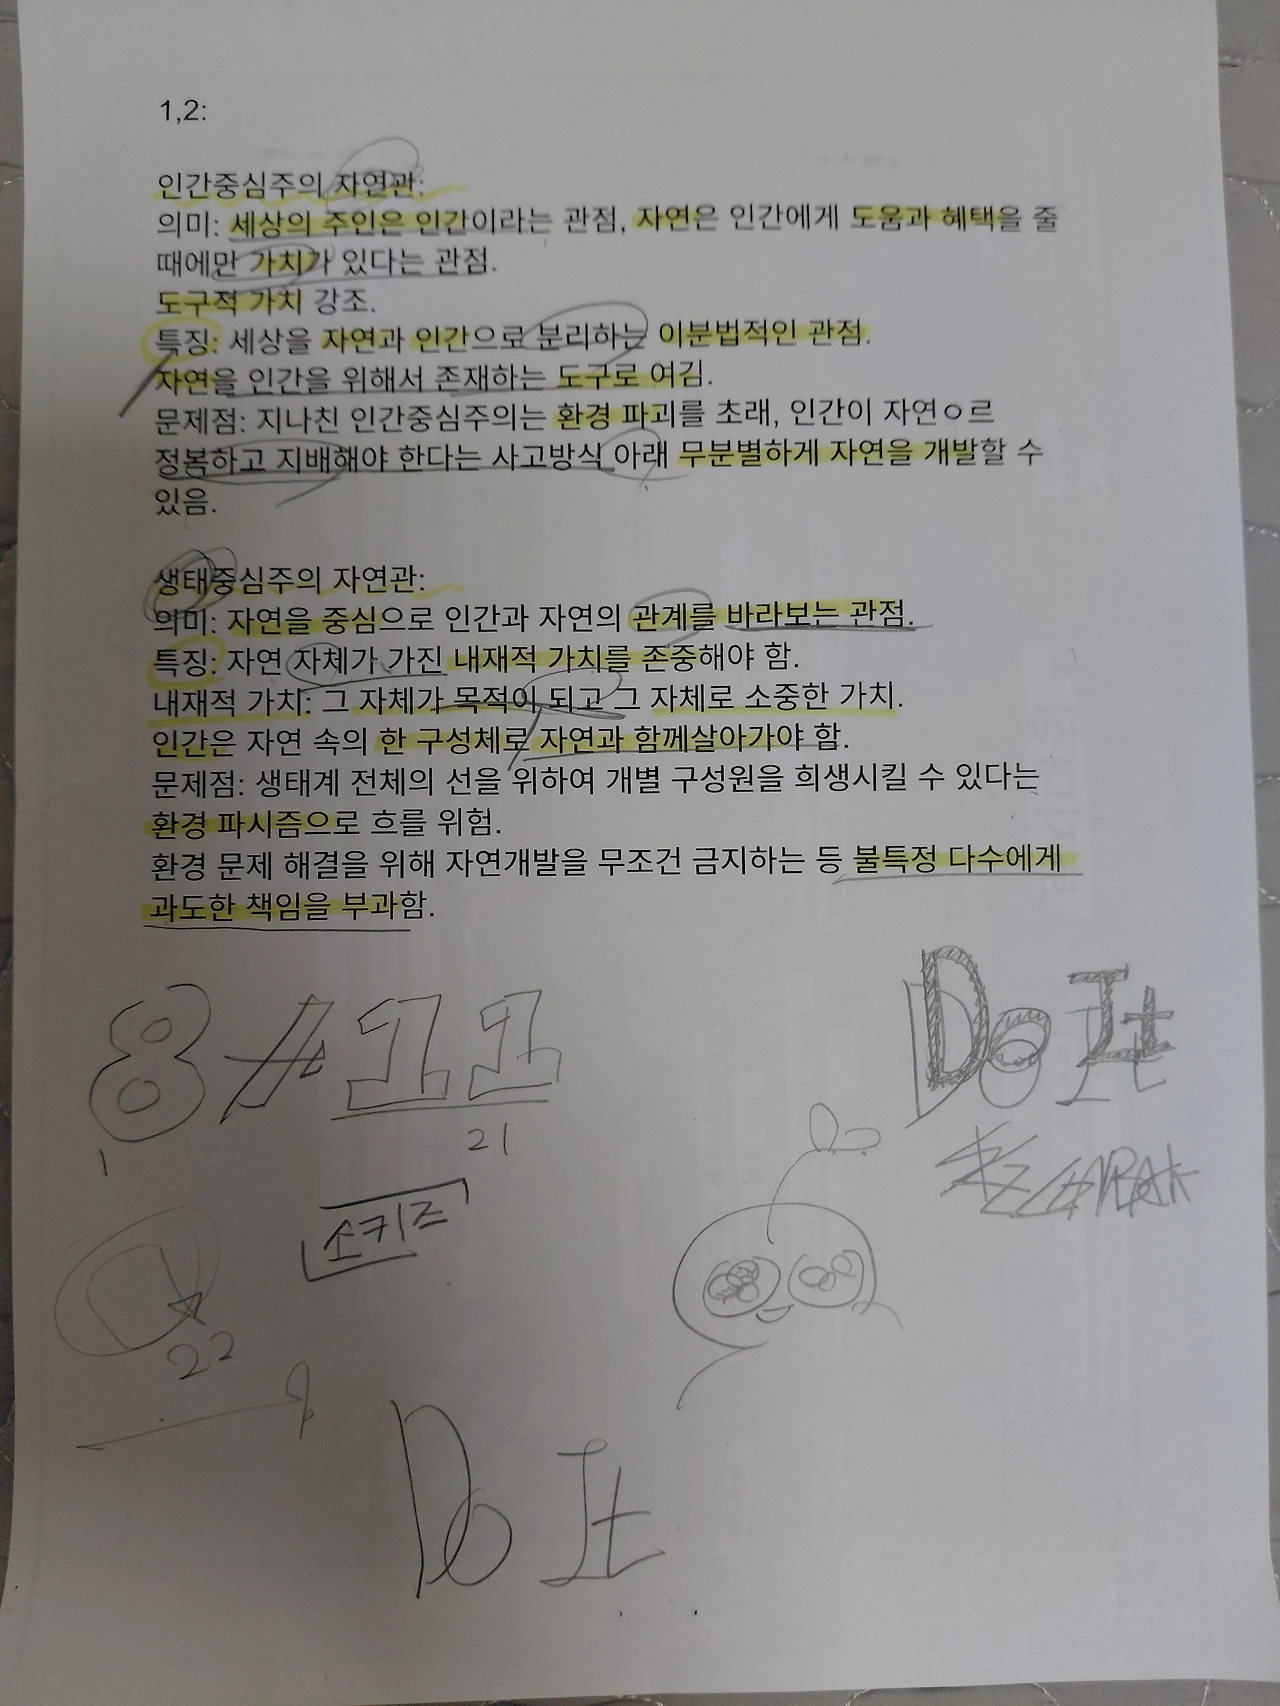 1,2:
인간중심주의 자연관:
의미: 세상의 주인은 인간이라는 관점, 자연은 인간에게 도움과 혜택을 줄
때에만 가치가 있다는 관점.
도구적 가치 강조.
특징: 세상을 자연과 인간으로 분리하는 이분법적인 관점.
자연을 인간을 위해서 존재하는 도구로 여김.
문제점: 지나친 인간중심주의는 환경 파괴를 초래, 인간이 자연ㅇ르
정복하고 지배해야 한다는 사고방식 아래 무분별하게 자연을 개발할 수
있음.
생태중심주의 자연관:
의미: 자연을 중심으로 인간과 자연의 관계를 바라보는 관점.
특징: 자연 자체가 가진 내재적 가치를 존중해야 함.
내재적 가치: 그 자체가 목적이 되고 그 자체로 소중한 가치.
인간은 자연 속의 한 구성체로 자연과 함께살아가야 함.
문제점: 생태계 전체의 선을 위하여 개별 구성원을 희생시킬 수 있다는
환경 파시즘으로 흐를 위험.
환경 문제 해결을 위해 자연개발을 무조건 금지하는 등 불특정 다수에게
과도한 책임을 부과함.
Do It
8 11
1 21
스키즈
22
Do It